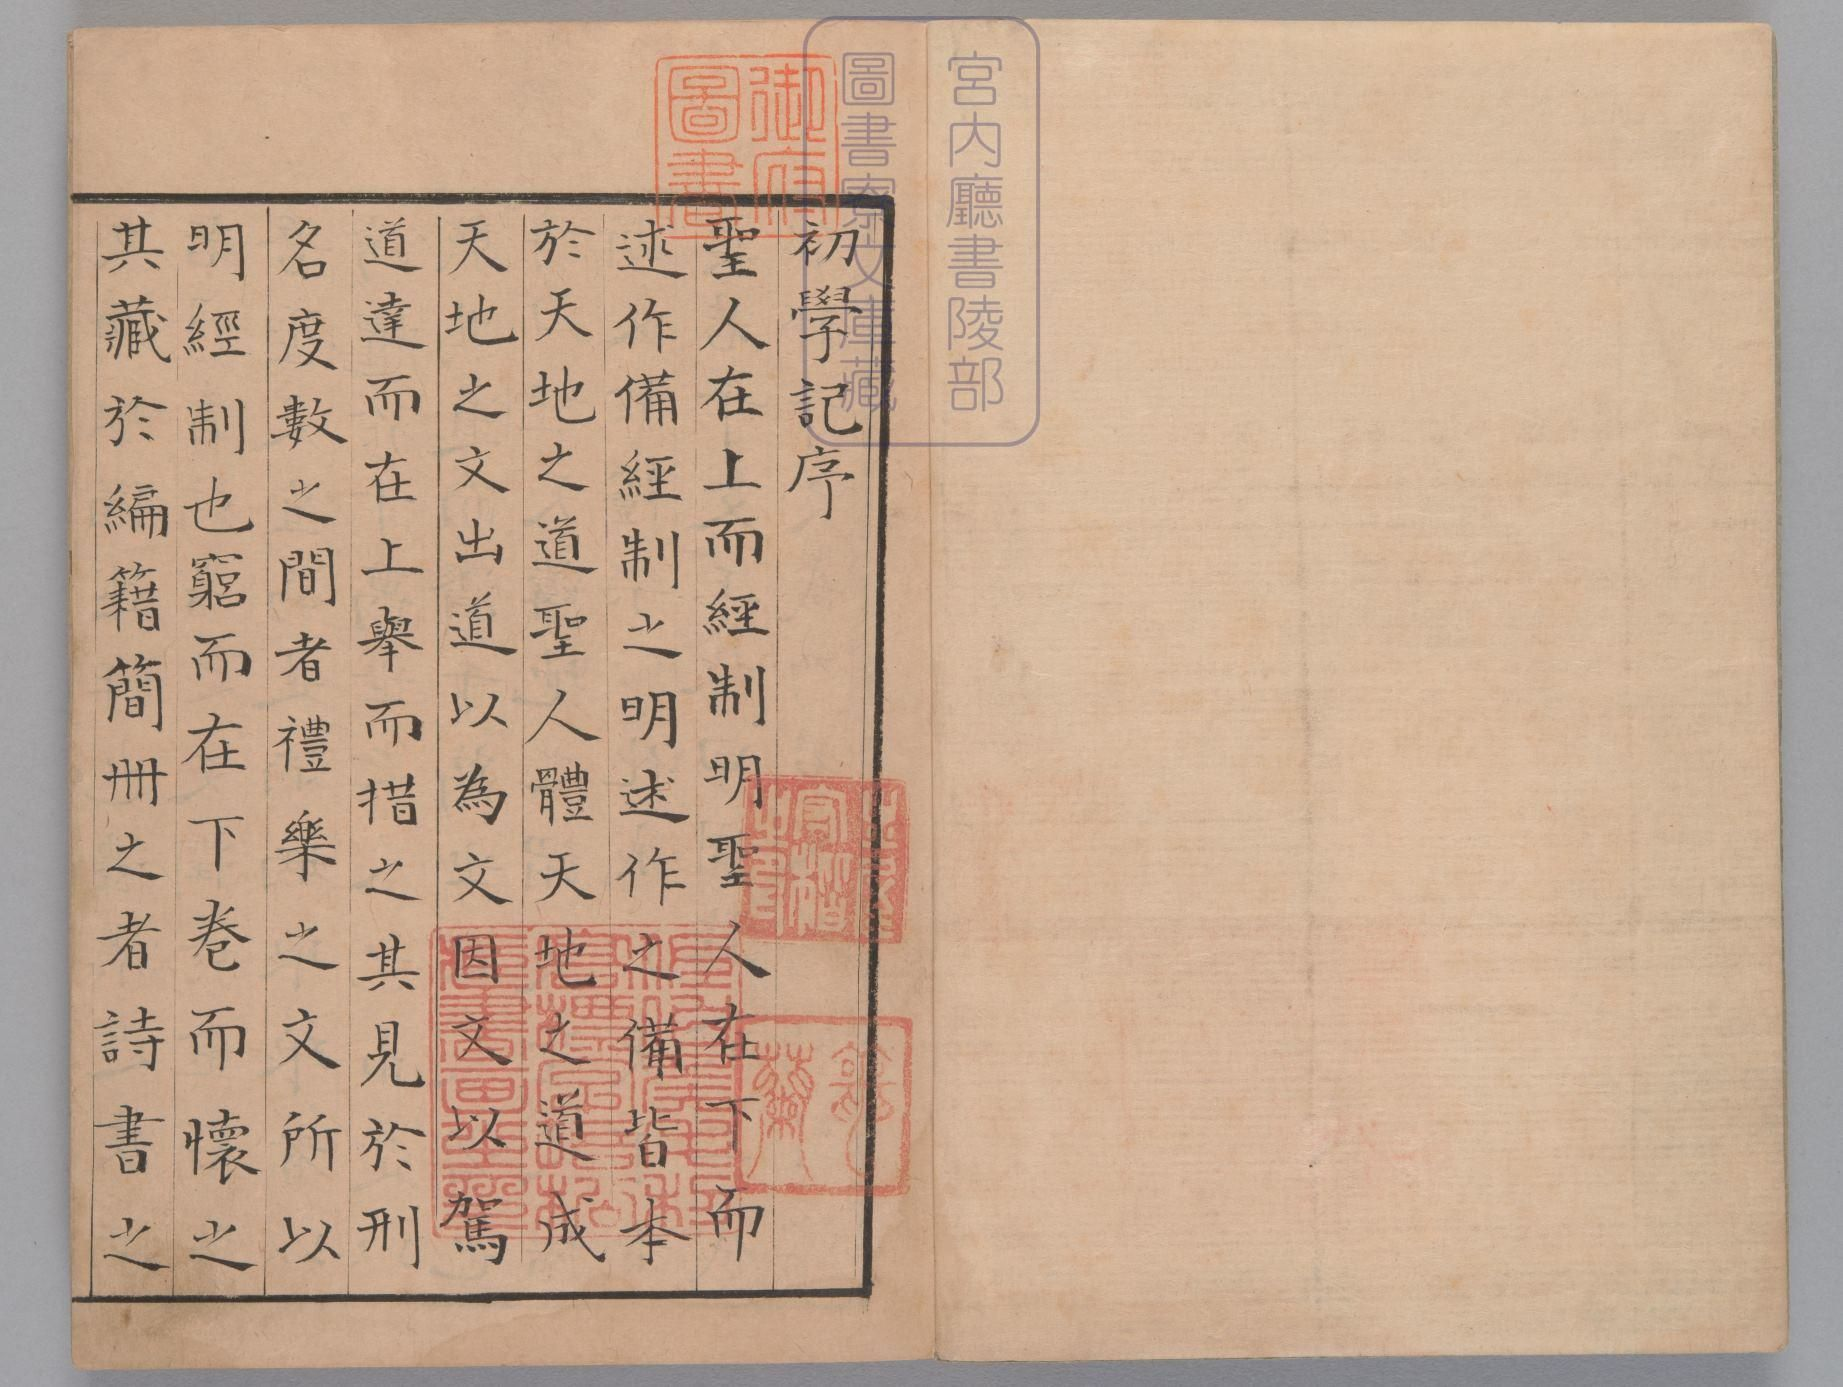 宮内廳書陵部
圖書寮文庫藏
御府
圖書
初學記序
聖人在上而經制明聖人在下而
述作備經制之明述作之備皆本
於天地之道聖人體天地之道成
天地之文出道以為文因文以駕
道達而在上舉而措之其見於刑
名度數之間者禮樂之文所以
明經制也窮而在下卷而懷之
其藏於編籍簡冊之者詩書之